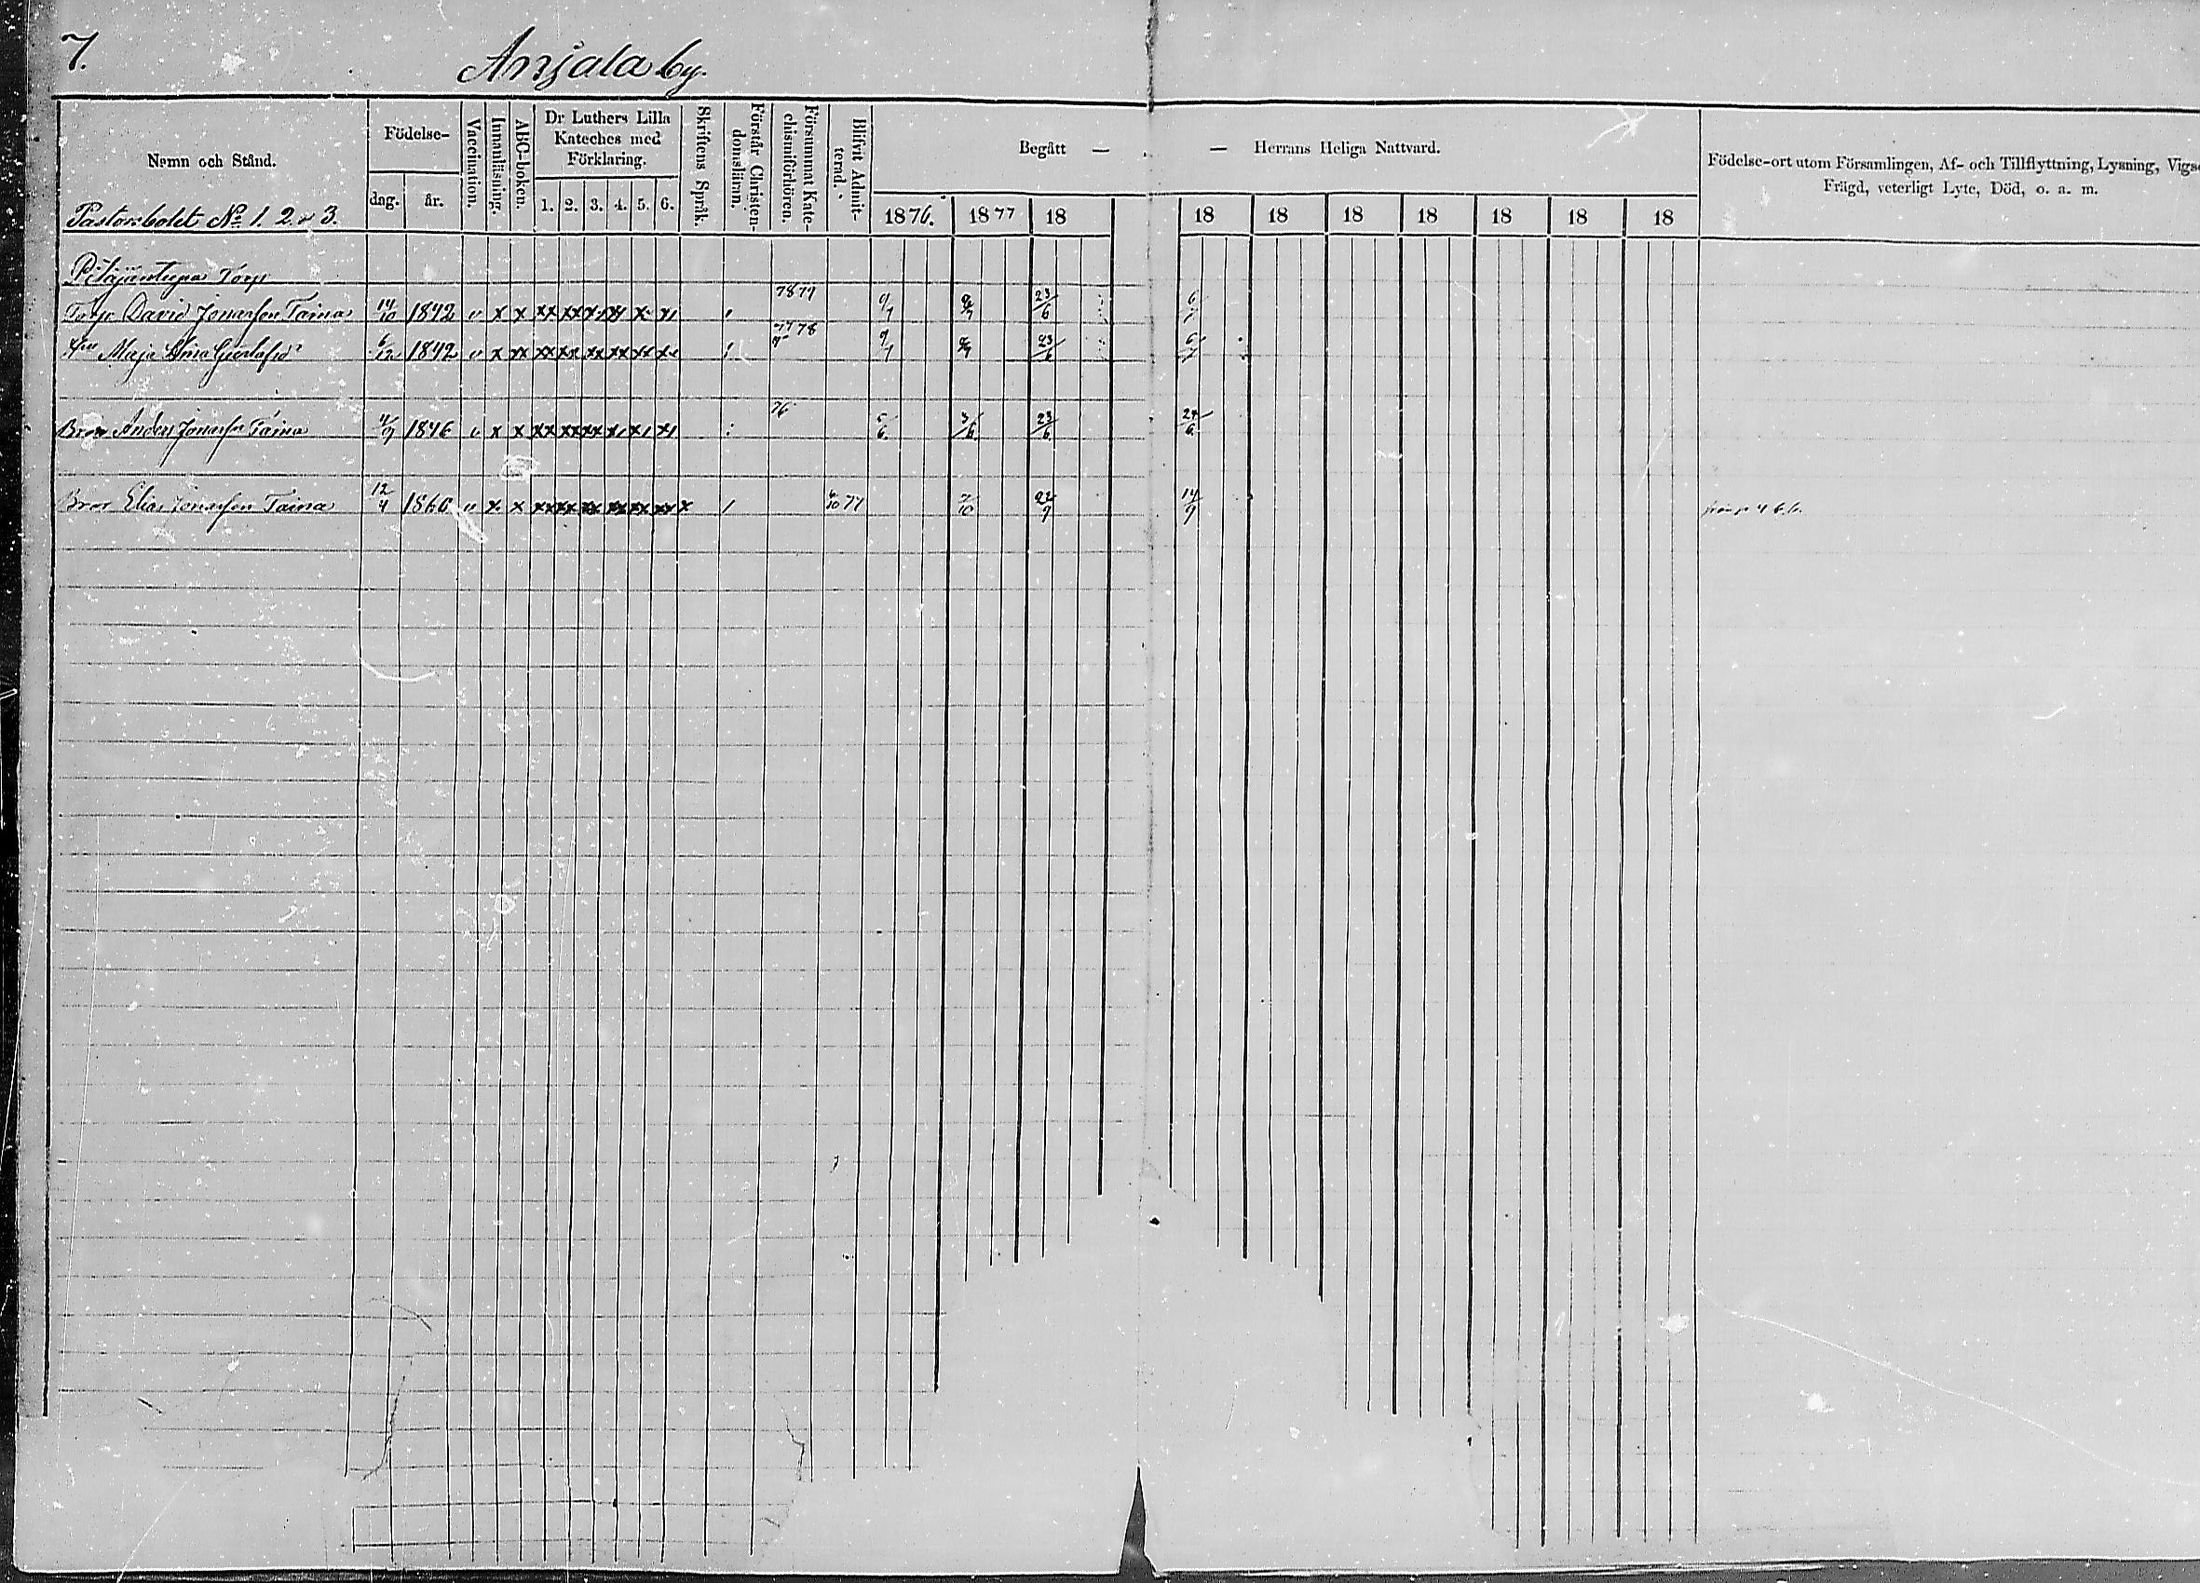 7.
Anjala by.
Nemn och Stånd.
Födelse-
dag.
år.
Vaccination.
Innanläsning.
ABC-boken.
Dr Luthers Lilla
Kateches med
Förklaring.
1. 2. 3. 4. 5. 6.
Skriftens Språk.
Förstår Christen-
domsläran.
Försummat Kate-
chismiförhören.
Blifvit Admit-
terad.
Begått — — Herrans Heliga Nattvard.
1876. 1877 18 18 18 18 18 18 18 18
Födelse-ort utom Församlingen, Af- och Tillflyttning, Lysning, Vigs
Frägd, veterligt Lyte, Död, o. a. m.
Pastorsbolet No 1. 2. o 3.
Torp
Torp. David Jonasson Taina 14/10 1842 v x x xx xx x x x x 78 79 23/6
Maja 6/12 1842 v x xx xx xx xx xx xx x 77 78 23/6
Bror Anders Jonass Taina 4/9 1846 v x x xx xx xx x x x 76 5/6 3/6 23/6 24/6
Bror Elias Jonasson Taina 12/4 1860 v x x xx xx xx xx xx xx x 77 7/10 22/9 14/9